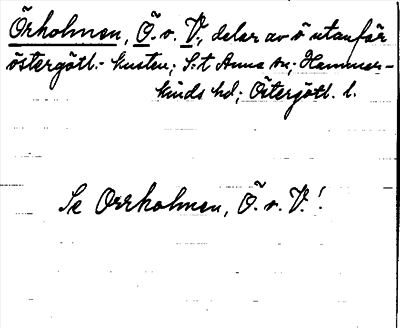 Örholmen, Ö. o. V., delar av ö utanför
östergötl.- kusten; S:t Anna sn; Hammer-
kinds hd; Östergötl. l.
Se Orrholmen, Ö. o. V.!